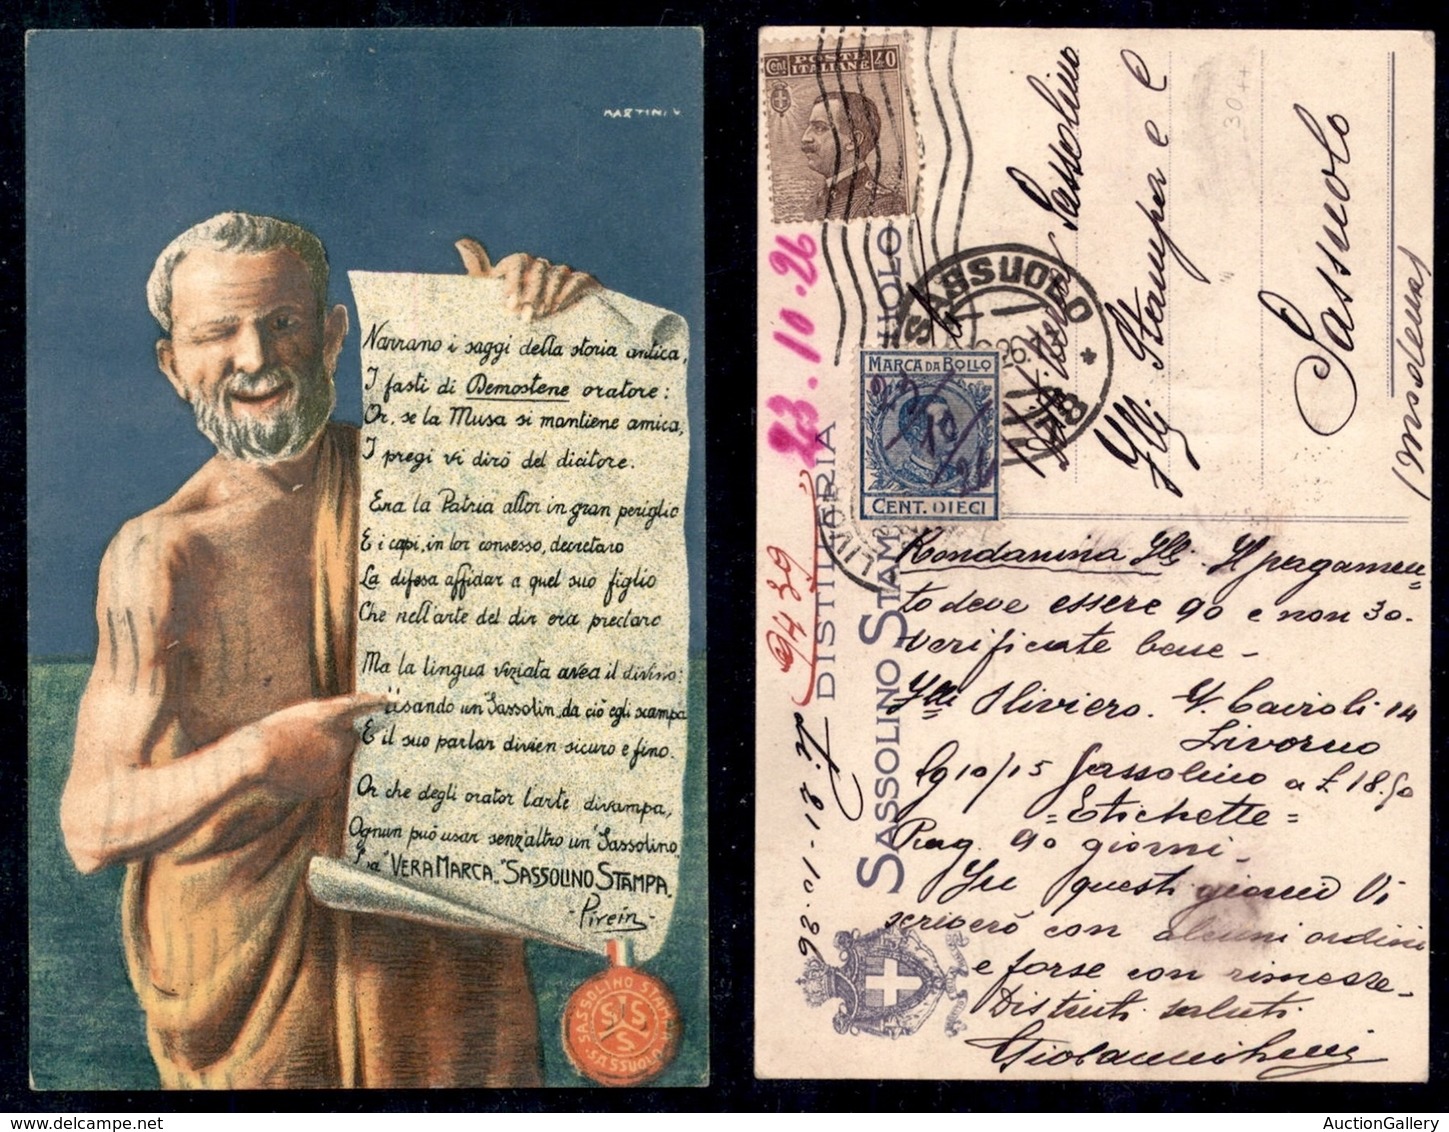 MARTINI
Narrano i saggi della storia antica,
I fasti di Demostene oratore:
Or, se la Musa si mantiene amica,
I pregi vi dirò del dicitore.
Era la Patria allor in gran periglio
E i capi, in lor consesso, decretaro
La difesa affidar a quel suo figlio
Che nell'arte del dir era preclaro
Ma la lingua viziata avea il divino:
Usando un "Sassolin, da ciò egli scampa
E il suo parlar divien sicuro e fino.
Or che degli orator l'arte divampa,
Ognun può usar senz'altro un "Sassolino
"VERA MARCA" "SASSOLINO STAMPA
- Pirein -
SASSOLINO STAMPA SASSUOLO
SIS
S
Cent. POSTE ITALIANE 40
SASSUOLO
MARCA DA BOLLO
23/10/26
CENT. DIECI
23.10.26
9439
DISTILLERIA
SASSOLINO STAMPA
21.10.26
30
Sassolino
Flli Stampa e C
Sassuolo
(Modena)
Rondanina Flli. Il pagamen=
to deve essere 90 e non 30.
Verificate bene -
Flli Oliviero. V. Cairoli 14
Livorno
Kg 10/15 Sassolino a £ 18.50
= Etichette =
Pag. 90 giorni -
In questi giorni Vi
scriverò con alcuni ordini
e forse con rimesse -
Distinti saluti
AuctionGallery